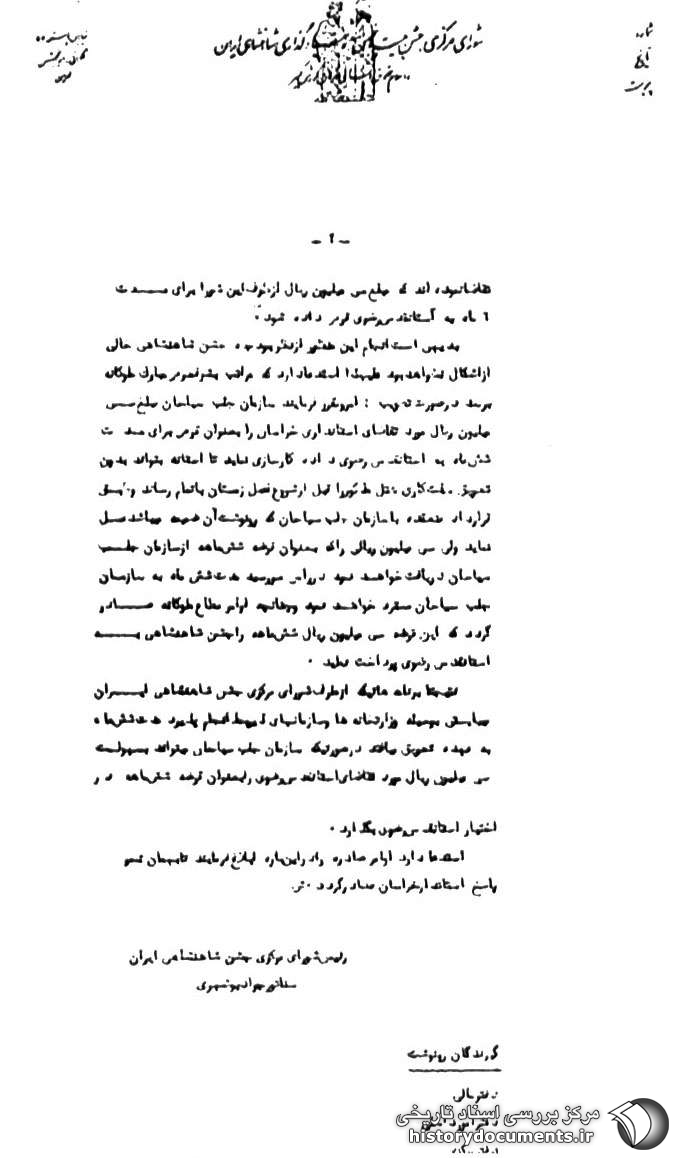 شماره
تاریخ
پیوست
شورای مرکزی جشن گذاری شاهنشاهی ایران
- ۲ -
تقاضا نموده اند که مبلغ سی میلیون ریال از طرف این شورا برای مدت
۶ ماه به آستانقدس رضوی قرض داده شود .
بدیهی است انجام این منظور از نظر بودجه جشن شاهنشاهی خالی
از اشکال نخواهد بود علیهذا استدعا دارد که مراتب بشرفعرض مبارک ملوکانه
برسد در صورت تصویب : امر و مقرر فرمایند سازمان جلب سیاحان مبلغ سی
میلیون ریال مورد تقاضای استانداری خراسان را بعنوان قرض برای مدت
شش ماه به آستانقدس رضوی داده کارسازی نماید تا آستانه بتواند بدون
تعویق کاری هتل مذکور را قبل از شروع فصل زمستان باتمام رساند و طبق
قرارداد منعقده با سازمان جلب سیاحان که رونوشت آن ضمیمه میباشد عمل
نماید ولی سی میلیون ریالی را که بعنوان قرضه شش ماهه از سازمان جلب
سیاحان دریافت خواهند نمود در راس سررسید مدت شش ماه به سازمان
جلب سیاحان مسترد خواهند نمود چنانچه اوامر مطاع ملوکانه صادر
گردد که این قرضه سی میلیون ریال شش ماهه را جشن شاهنشاهی به
آستانقدس رضوی پرداخت نماید .
نتیجتا برنامه هائیکه از طرف شورای مرکزی جشن شاهنشاهی ایران
میبایستی بوسیله وزارتخانه ها و سازمانهای ذیربط انجام پذیرد مدت شش ماه
به عهده تعویق میافتد در صورتیکه سازمان جلب سیاحان میتواند بسهولت
سی میلیون ریال مورد تقاضای آستانقدس رضوی را بعنوان قرضه شش ماهه در
اختیار آستانقدس رضوی بگذارد .
استدعا دارد اوامر صادره را در این باره ابلاغ فرمایند تا بهمان نحو
پاسخ استاندار خراسان صادر گردد .
رئیس شورای مرکزی جشن شاهنشاهی ایران
سناتور جواد بوشهری
گیرندگان رونوشت
دفتر مالی
مرکز بررسی اسناد تاریخی
historydocuments.ir